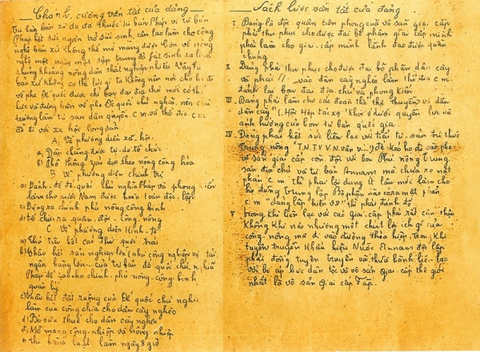 Chánh cương vắn tắt của đảng
Tư bản bản xứ đã thuộc tư bản Pháp vì tư bản
Pháp hết sức ngăn trở sức sinh sản làm cho công
nghệ bản xứ không thể mở mang được. Còn về nông
nghệ một ngày một tập trung đã phát sinh ra lắm
khủng hoảng, nông dân thất nghiệp nhiều. Vậy tư
bản bản xứ không có thế lực gì ta không nên nói cho họ đi
về phe đế quốc được, chỉ bọn đại địa chủ mới có thế
lực và đứng hẳn về phe đế quốc chủ nghĩa nên chủ
trương làm tư sản dân quyền c.m. và thổ địa c.m.
để đi tới xã hội cộng sản
A. Về phương diện xã hội
a) Dân chúng được tự do tổ chức
b) phổ thông giáo dục theo công nông hoá
B. Về phương diện chính trị
a) Đánh đổ đế quốc chủ nghĩa Pháp và phong kiến
làm cho nước Nam được hoàn toàn độc lập
c) Dựng ra chính phủ nông công binh
d) Tổ chức ra quân đội công nông
C. Về phương diện kinh tế
a) Thủ tiêu hết các thứ quốc trái
b) Thâu hết sản nghiệp lớn (như công nghiệp vận tải
ngân hàng v.v.) của tư bản đế quốc chủ nghĩa
Pháp để giao cho chính phủ nông công binh
quản lý
c) Thâu hết đất ruộng của đế quốc chủ nghĩa
làm của công chia cho dân cày nghèo
d) Bỏ sưu thuế cho dân cày nghèo
e) Mở mang công nghiệp và nông nghiệp
thi hành luật làm ngày 8 giờ
Sách lược vắn tắt của đảng
I. Đảng là đội quân tiên phong của vô sản giai cấp
phải thu phục cho được đại bộ phận giai cấp mình
phải làm cho giai cấp mình lãnh đạo được quần
chúng
II. Đảng phải thu phục cho được đại bộ phận dân cày
và phải dân cày nghèo làm thổ địa c.m.
đánh đổ bọn đại địa chủ và phong kiến
III. Đảng phải làm cho các đoàn thể thợ thuyền và dân
cày khỏi ở dưới quyền lực và
ảnh hưởng của bọn tư bản quốc gia
IV. Đảng phải hết sức liên lạc với tiểu tư sản, trí thức
trung nông T.N, T.V.V. để kéo họ đi vào phe
vô sản giai cấp. Còn đối với bọn phú nông, trung
tiểu địa chủ và tư bản Annam mà chưa rõ mặt
phản c.m. thì phải lợi dụng, ít lâu mới làm cho
họ đứng trung lập. Bộ phận nào đã ra mặt phản
c.m. thì phải đánh đổ
V. Trong khi liên lạc với các giai cấp phải rất cẩn thận
không khi nào nhượng một chút lợi ích gì của
công nông mà đi vào đường thoả hiệp, trong khi
tuyên truyền khẩu hiệu nước Annam độc lập
phải đồng tuyên truyền và thực hành liên lạc
với bị áp bức dân tộc và vô sản giai cấp thế giới
nhất là vô sản giai cấp Pháp